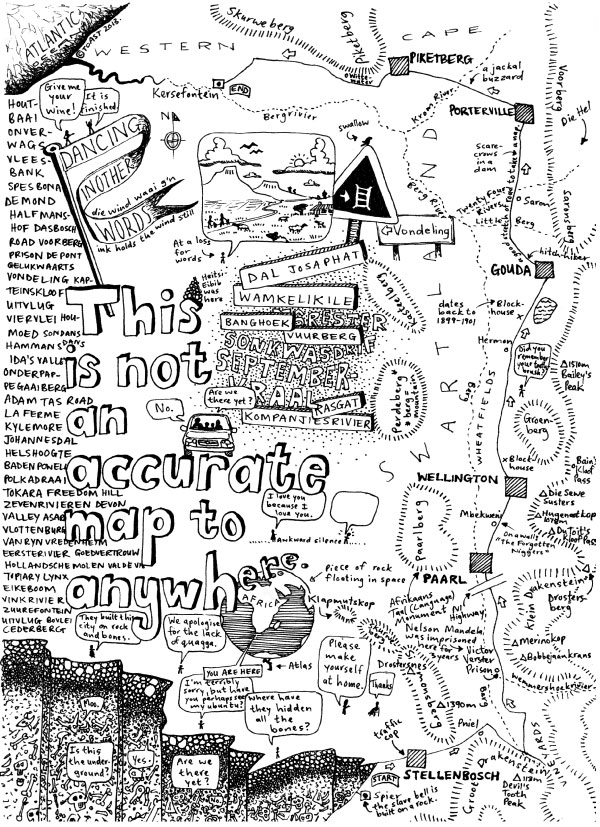 ATLANTIC
©TOAST 2018.
WESTERN
CAPE
Skurweberg
Piketberg
PIKETBERG
Witte-
water
a jackal
buzzard
Voorberg
Die Hel
Give me
your
wine!
It is
finished.
Kersefontein
END
N
Bergrivier
Krom River
PORTERVILLE
HOUT-
BAAI
ONVER-
WAGS
VLEES-
BANK
SPES BONA
DEMOND
HALFMANS-
HOF DASBOSCH
ROAD VOORBERG
PRISON DE PONT
GELUKWAARTS
VONDELING KAP-
TEINSKLOOF
UITVLUG
VIERVLEI HOU-
MOED SONDANS
HAMMANSDANS
IDA'S VALLEY
ONDERPAP-
PEGAAIBERG
ADAM TAS ROAD
LA FERME
KYLEMORE
JOHANNESDAL
HELSHOOGTE
BADEN POWELL
POLKADRAAI
TOKARA FREEDOM HILL
ZEVENRIVIEREN DEVON
VALLEY ASARA
VLOTTENBURG
VAN RYN VREDENHEIM
EERSTERIVIER GOEDVERTROUW
HOLLANDSCHE MOLEN VALDEVIA
TOPIARY LYNX
EIKEBOOM
VINKRIVIER
ZUURFONTEIN
UITVLUG BOVLEI
CEDERBERG
DANCING
IN OTHER
WORDS
die wind waai g'n
ink holds the wind still
swallow
At a loss
for
words
Heitsi
Eibib
was
here
Vondeling
DAL JOSAPHAT
WAMKELIKILE
BANGHOEK
VUURBERG
SONKWASDRIF
SEPTEMBER-
KRAAL
KASGAT
KOMPANJIESRIVIER
Are we
there yet?
No.
This
is not
an
accurate
map to
anywhere.
SWARTLAND
Berg River
Scare-
crows
in a
dam
good stretch of road to take a nap
Twenty Four
Rivers
Saron
Little Berg
Saronsberg
hitch hiker
GOUDA
Kasteelberg
dates
back to
1899-1901
Block-
house
Hermon
Did you
remember
your tooth
brush?
Islom
Bailey's
Peak
Perdeberg
berg =
mountain
Berg
WHEATFIELDS
Groen-
berg
Block-
house
Bain's
Kloof
Pass
WELLINGTON
Die Sewe
Susters
Hugenootkop
1078m
DuToit's
Kloof Pass
Mbekweni
On a wall
"the Forgotten
Niggers"
Paarlberg
PAARL
I love you
because I
love you.
Awkward silence
piece of rock
floating in space
AFRICA
Klapmutskop
Afrikaans
Taal (Language)
Monument
N1
Highway
Klein Drakenstein
Drosters-
berg
Nelson Mandela
was imprisoned
here for
3 years
Victor
Verster
Prison
Merinokop
Bobbejaankrans
Wemmershoek rivier
They built this
city on rock
and bones.
We apologise
for the lack
of quagga.
YOU ARE HERE
Atlas
Please
make
yourself
at home.
Thanks
Drostersnes
Simonsberg
1390m
Berg
I'm terribly
sorry, but have
you perhaps seen
my ubuntu?
Where have
they hidden
all the
bones?
Moo.
Is this
the under-
ground?
Yes.
Are we
there
yet?
No.
traffic
cop
Pniel
VINEYARDS
START
STELLENBOSCH
Spier
the slave bell is
built on a rock.
Groot Drakenstein
Devil's
Tooth
Peak